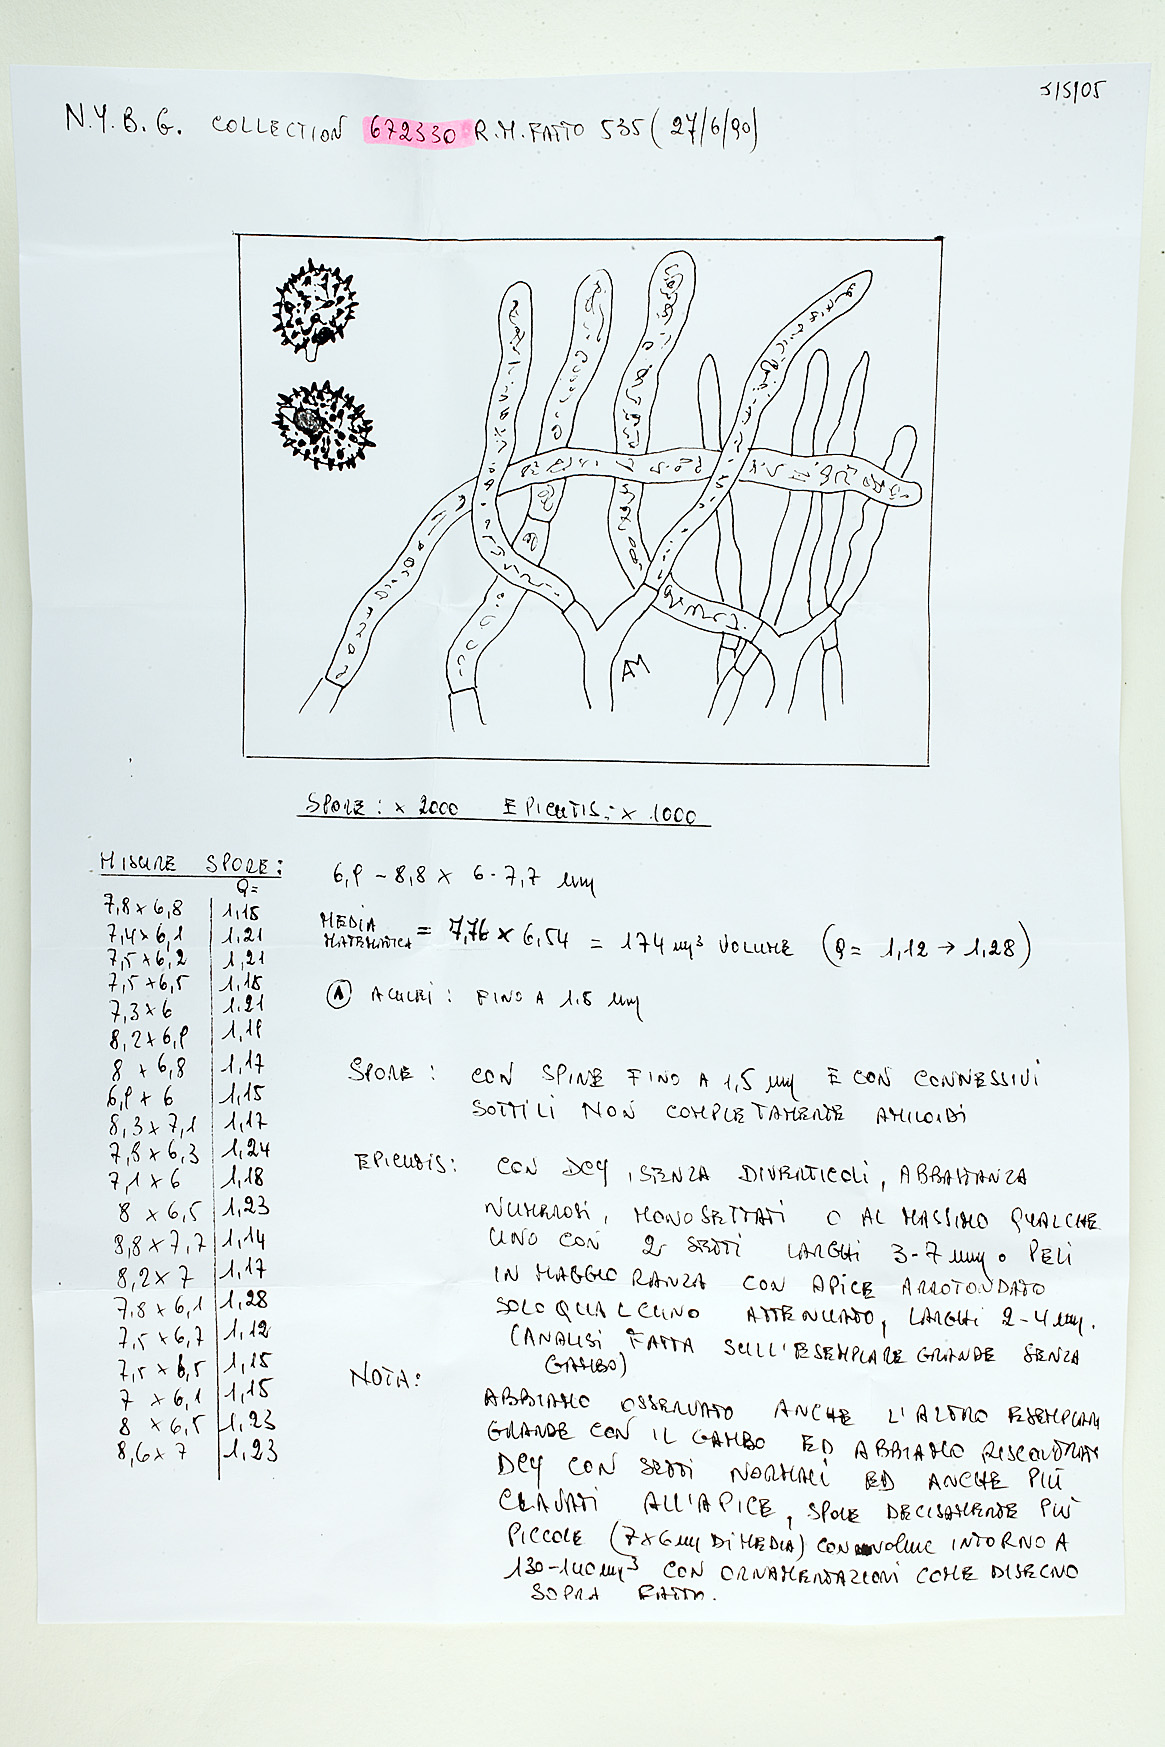 5/5/05
N.Y.B.G. COLLECTION 672330 R.M. FATTO 535 (27/6/90)
AM
SPORE: x 2000 EPICUTIS: x 1000
MISURE SPORE:
Q=
7,8 x 6,8 1,15
7,4 x 6,1 1,21
7,5 x 6,2 1,21
7,5 x 6,5 1,15
7,3 x 6 1,21
8,2 x 6,9 1,19
8 x 6,8 1,17
6,9 x 6 1,15
8,3 x 7,1 1,17
7,8 x 6,3 1,24
7,1 x 6 1,18
8 x 6,5 1,23
8,8 x 7,7 1,14
8,2 x 7 1,17
7,8 x 6,1 1,28
7,5 x 6,7 1,12
7,5 x 6,5 1,15
7 x 6,1 1,15
8 x 6,5 1,23
8,6 x 7 1,23
6,9 - 8,8 x 6 - 7,7 µm
MEDIA MATEMATICA = 7,76 x 6,54 = 174 µm³ VOLUME (Q= 1,12 → 1,28)
A ACULEI: FINO A 1.5 µm
SPORE: CON SPINE FINO A 1,5 µm E CON CONNESSIVI
SOTTILI NON COMPLETAMENTE AMILOIDI
EPICUTIS: CON DCY, SENZA DIVERTICOLI, ABBASTANZA
NUMEROSI, MONOSETTATI O AL MASSIMO QUALCHE
UNO CON 2 SETTI LARGHI 3-7 µm. PELI
IN MAGGIORANZA CON APICE ARROTONDATO
SOLO QUALCUNO ATTENUATO, LARGHI 2-4 µm.
(ANALISI FATTA SULL'ESEMPLARE GRANDE SENZA
GAMBO)
NOTA:
ABBIAMO OSSERVATO ANCHE L'ALTRO ESEMPLARE
GRANDE CON IL GAMBO ED ABBIAMO RISCONTRATI
DCY CON SETTI NORMALI ED ANCHE PIÙ
CLAVATI ALL'APICE, SPORE DECISAMENTE PIÙ
PICCOLE (7x6 µm DI MEDIA) CON VOLUME INTORNO A
130-140 µm³ CON ORNAMENTAZIONI COME DISEGNO
SOPRA FATTO.